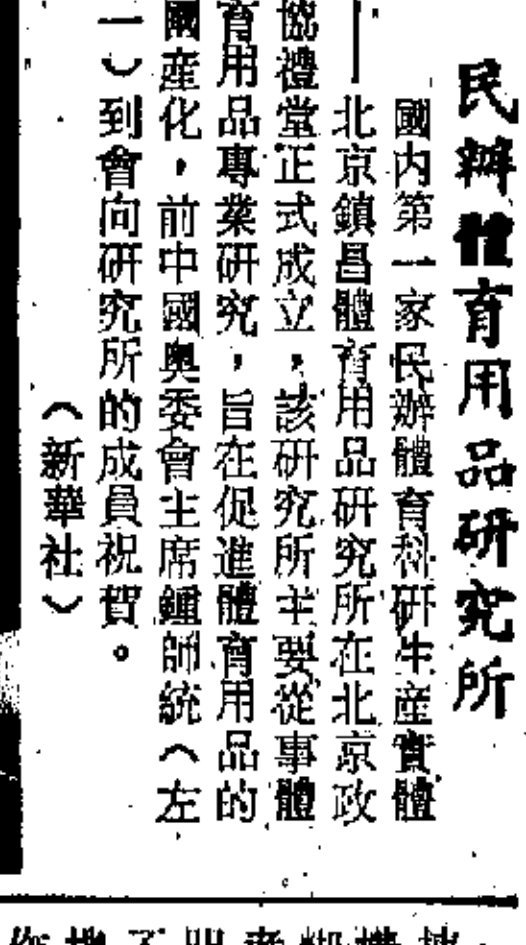 民辦體育用品研究所
國内第一家民辦體育科研生産實體
——北京鎮昌體育用品研究所在北京政
協禮堂正式成立，該研究所主要從事體
育用品專業研究，旨在促進體育用品的
國産化，前中國奧委會主席鍾師統（左
一）到會向研究所的成員祝賀。
（新華社）